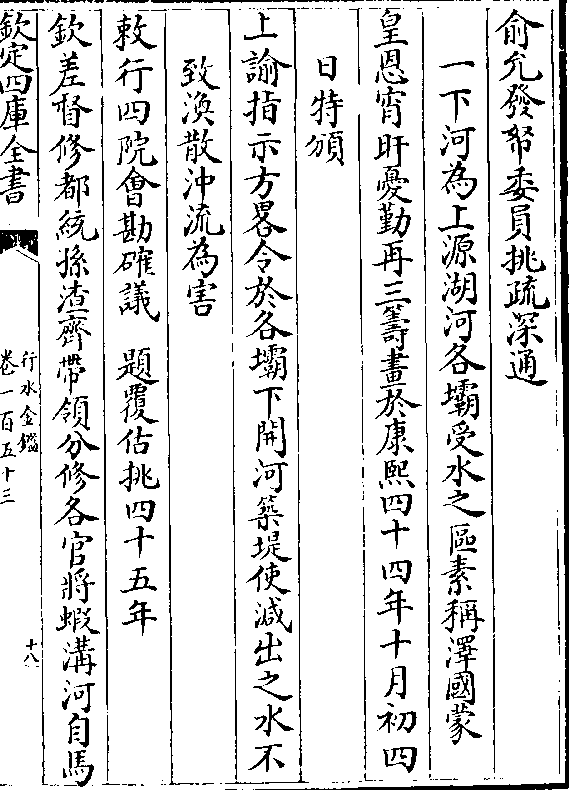 俞允發帑委員挑疏深通
一下河為上源湖河各壩受水之區素稱澤國蒙
皇恩宵旰憂勤再三籌畫於康熙四十四年十月初四
日特頒
上諭指示方畧令於各壩下開河築堤使減出之水不
致渙散沖流為害
敕行四院會勘確議　題覆估挑四十五年
欽差督修都統孫渣齊帶領分修各官將蝦溝河自馬
欽定四庫全書
行水金鑑
卷一百五十三
十八